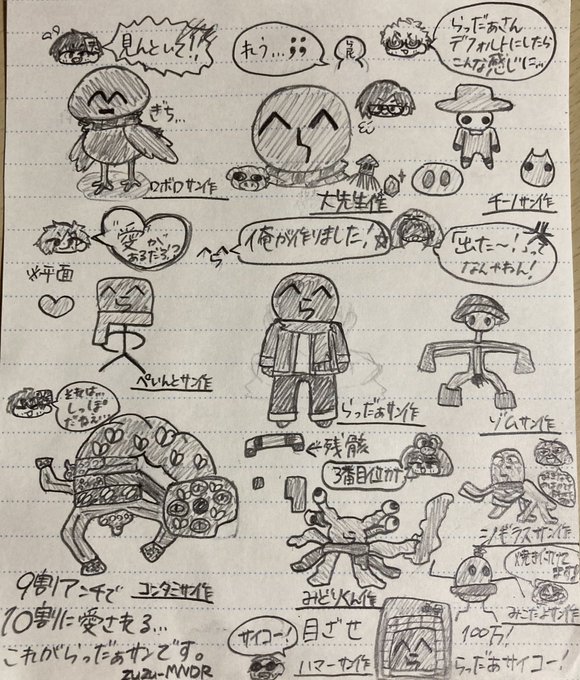 見んといて!!
れう...;;
らっだぁさん
デフォルトにしたら
こんな感じに...
きち...
ロボロサン作
大先生作
チーノサン作
"愛"が
あるだろ!?
へらへ
俺が作りました!
「出た〜!」って
なんやねん!
※平面
ぺいんとサン作
らっだぁサン作
ゾムサン作
それは...
しっぽ
だねぇ...
←残骸
3番目位か
コンタミサン作
みどりくん作
シノギラスサン作
みこだよサン作
9割アンチで
10割に愛される...
これがらっだぁサンです。
zuzu-MNDR
サイコー!
目ざせ
ハマーサン作
100万!
らっだぁサイコー!